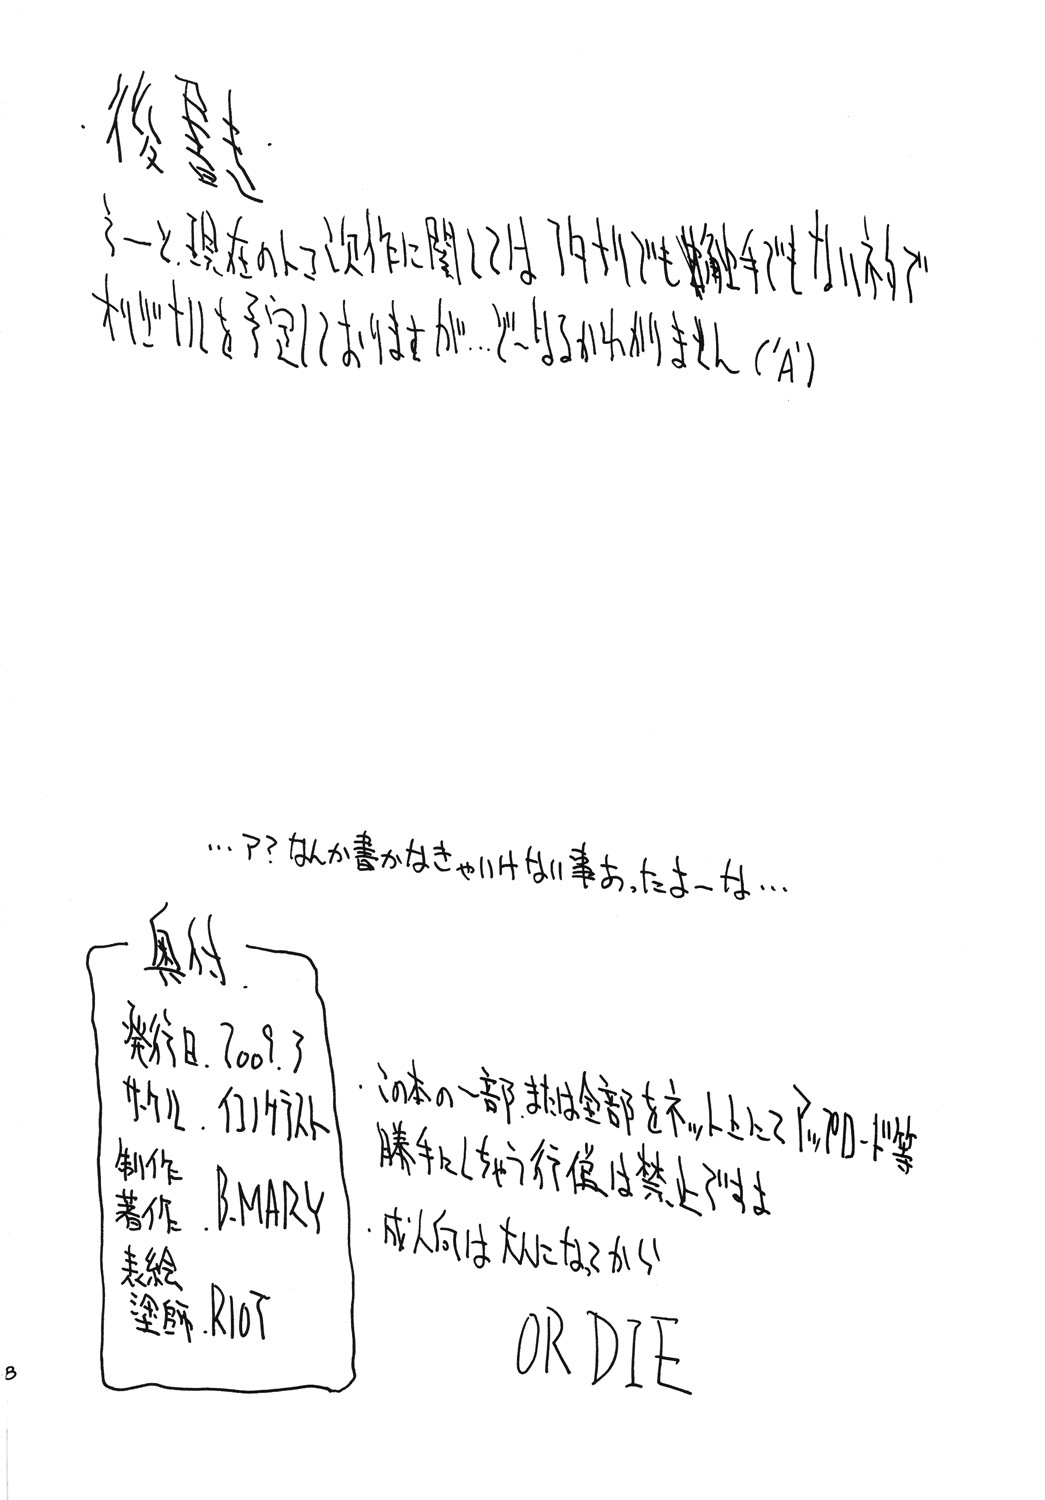 ・後書き・
えーと、現在のトコ次作に関してはフタナリでも触手でもないネタで
オリジナルを予定しておりますが…ど〜なるかわかりません('A`)
…ア?なんか書かなきゃいけない事あったよーな…
奥付.
発行日.2009.3
サークル.イコノクラスト
制作
著作.B.MARY
表絵
塗師.RIOT
・この本の一部、または全部をネット上にてアップロード等
勝手にしちゃう行為は禁止ですよ
・成人向は大人になってから
OR DIE